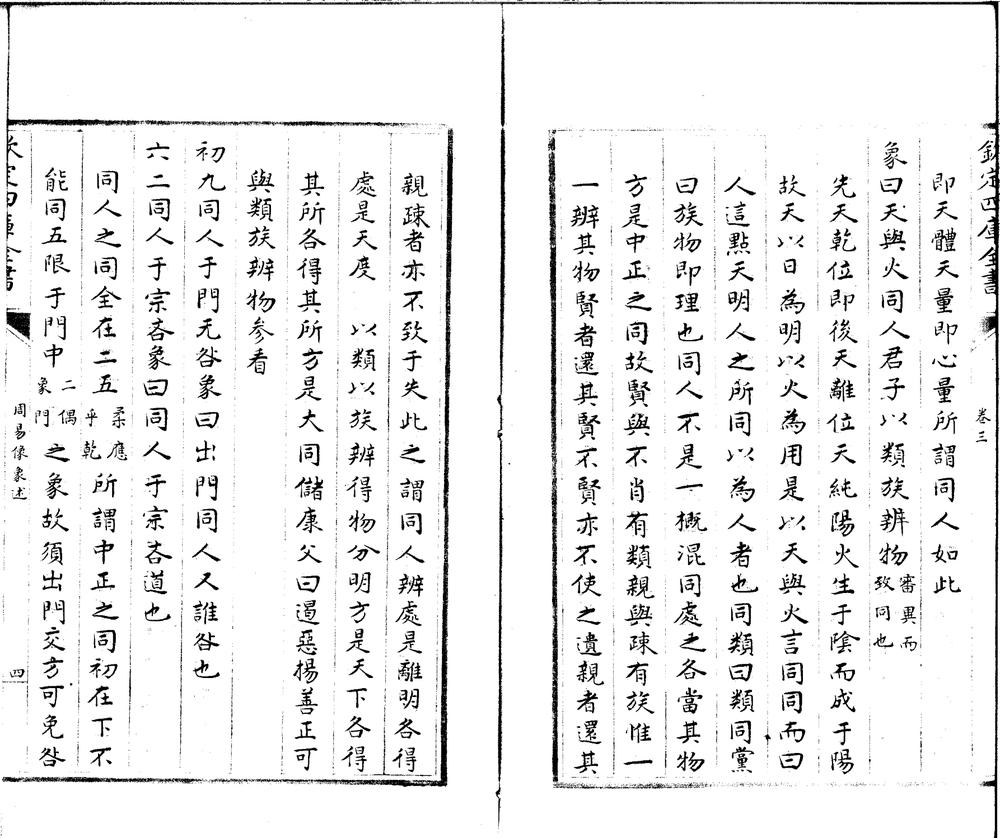 欽定四庫全書
卷三
即天體天量即心量所謂同人如此
象曰天與火同人君子以類族辨物審異而致同也
先天乾位即後天離位天純陽火生于陰而成于陽
故天以日為明以火為用是以天與火言同同而曰
人這點天明人之所同以為人者也同類曰類同黨
曰族物即理也同人不是一概混同處之各當其物
方是中正之同故賢與不肖有類親與疎有族惟一
一辨其物賢者還其賢不賢亦不使之遺親者還其
親疎者亦不致于失此之謂同人辨處是離明各得
處是天度 以類以族辨得物分明方是天下各得
其所各得其所方是大同儲康父曰遏惡揚善正可
與類族辨物參看
初九同人于門无咎象曰出門同人又誰咎也
六二同人于宗吝象曰同人于宗吝道也
同人之同全在二五柔應乎乾所謂中正之同初在下不
能同五限于門中二偶象門之象故須出門交方可免咎
欽定四庫全書
周易像象述
四